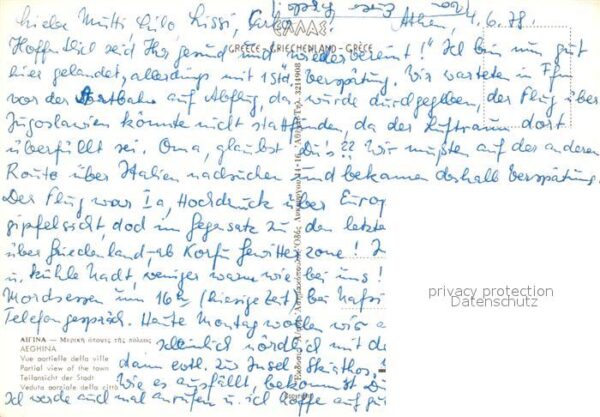 Athen, 4.6.78.
Liebe Mutti, Lilo, Sissi,
ΕΛΛΑΣ
GREECE - GRIECHENLAND - GRECE
Hoffentlich seid Ihr gesund und "wiedervereint!" Ich bin nun gut
hier gelandet, allerdings mit 1 Std. Verspätung. Wir warteten in Ffm
vor der Startbahn auf Abflug, da wurde durchgegeben, der Flug über
Jugoslawien könnte nicht stattfinden, da der Luftraum dort
überfüllt sei. Oma, glaubst Du's?? Wir mußten auf der anderen
Route über Italien nachsuchen und bekamen deshalb Verspätung.
Der Flug war Ia, Hochdruck über Europ
gipfelsicht, doch im Gegensatz zu den letzte
über Griechenland-ab Korfu Gewitterzone!
u. kühle Nacht, weniger warm wie bei uns!
Mordsessen um 16h (hiesige Zeit) bei
Telefongespräch. Heute Montag wollen wir
ΑΙΓΙΝΑ — Μερική άποψις τής πόλεως
AEGHINA
Vue partielle della ville
Partial view of the town
Teilansicht der Stadt
Veduta parziale della città
nördlich mit d
dann evtl. zur Insel Skiathos,
Wie es ausfällt, bekommst Du
Ich werde auch mal anrufen u. ich hoffe auf gu
3214908
privacy protection
Datenschutz